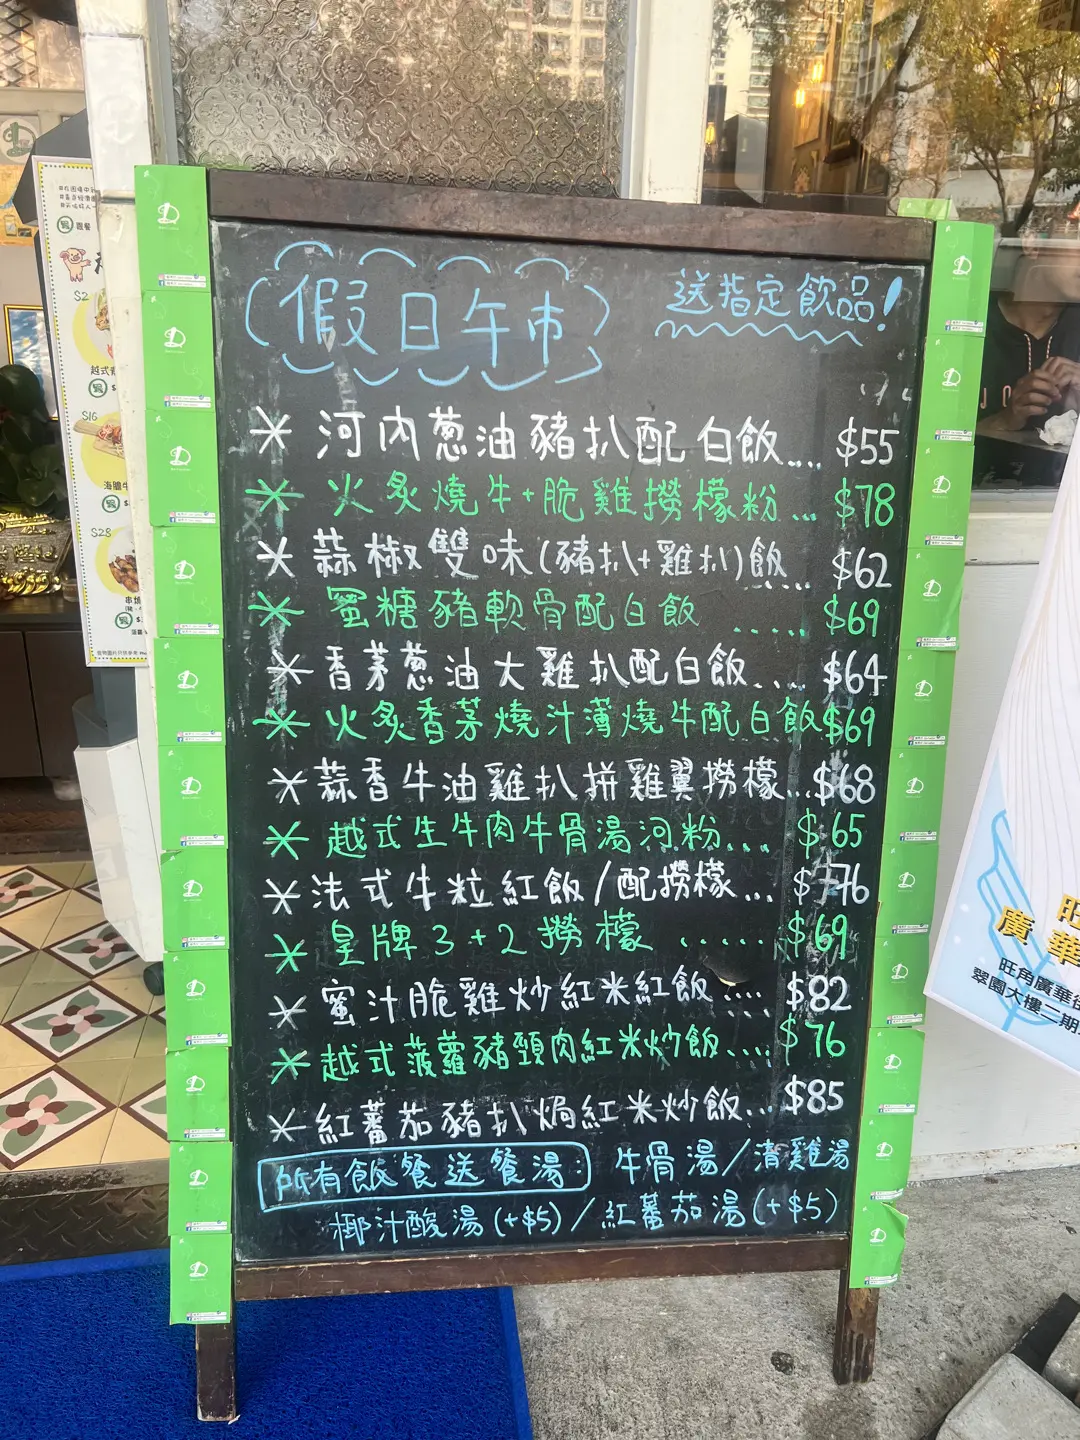 假日午市
送指定飲品!
* 河內蔥油豬扒配白飯.... $55
* 火炙燒牛+脆雞撈檬粉... $78
* 蒜椒雙味(豬扒+雞扒)飯.... $62
* 蜜糖豬軟骨配白飯 ..... $69
* 香茅蔥油大雞扒配白飯.... $64
* 火炙香茅燒汁薄燒牛配白飯 $69
* 蒜香牛油雞扒拼雞翼撈檬... $68
* 越式生牛肉牛骨湯河粉... $65
* 法式牛粒紅飯/配撈檬... $76
* 皇牌3+2撈檬 ...... $69
* 蜜汁脆雞炒紅米紅飯.... $82
* 越式菠蘿豬頸肉紅米炒飯.... $76
* 紅蕃茄豬扒焗紅米炒飯... $85
所有飯餐送餐湯: 牛骨湯/清雞湯
椰汁酸湯(+$5)/紅蕃茄湯(+$5)
S2
越式
S16
海膽牛
S28
串燒
旺
廣華
旺角廣華街
翠園大樓二期